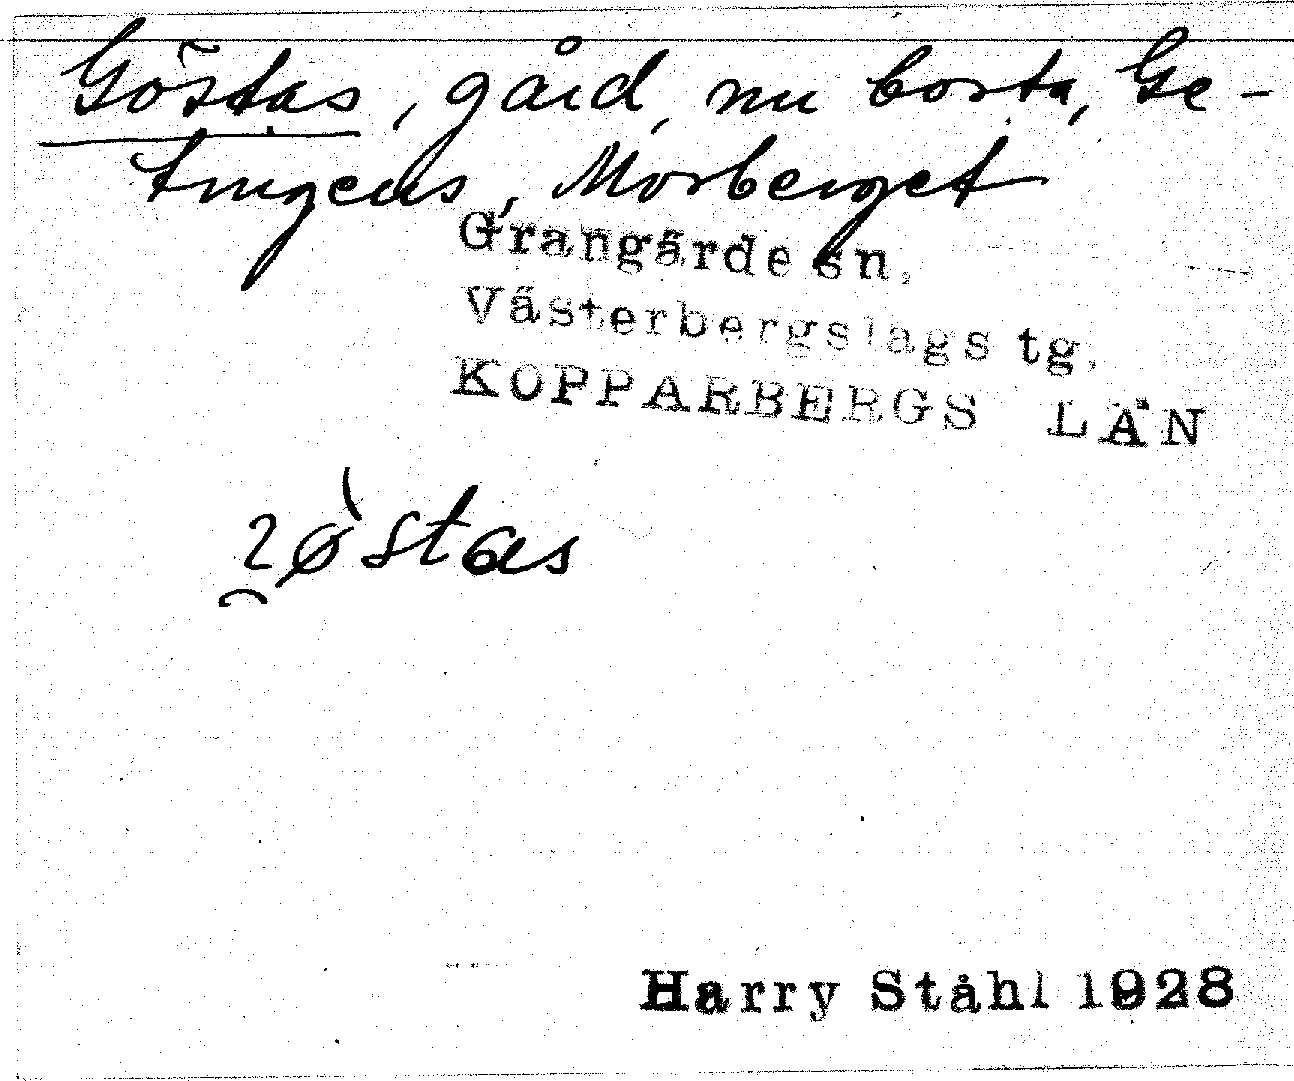 Göstas, gård, nu borta, Ge-
tingens, Morberget
Grangärde sn,
Västerbergslags tg,
KOPPARBERGS LÄN
Harry Ståhl 1928